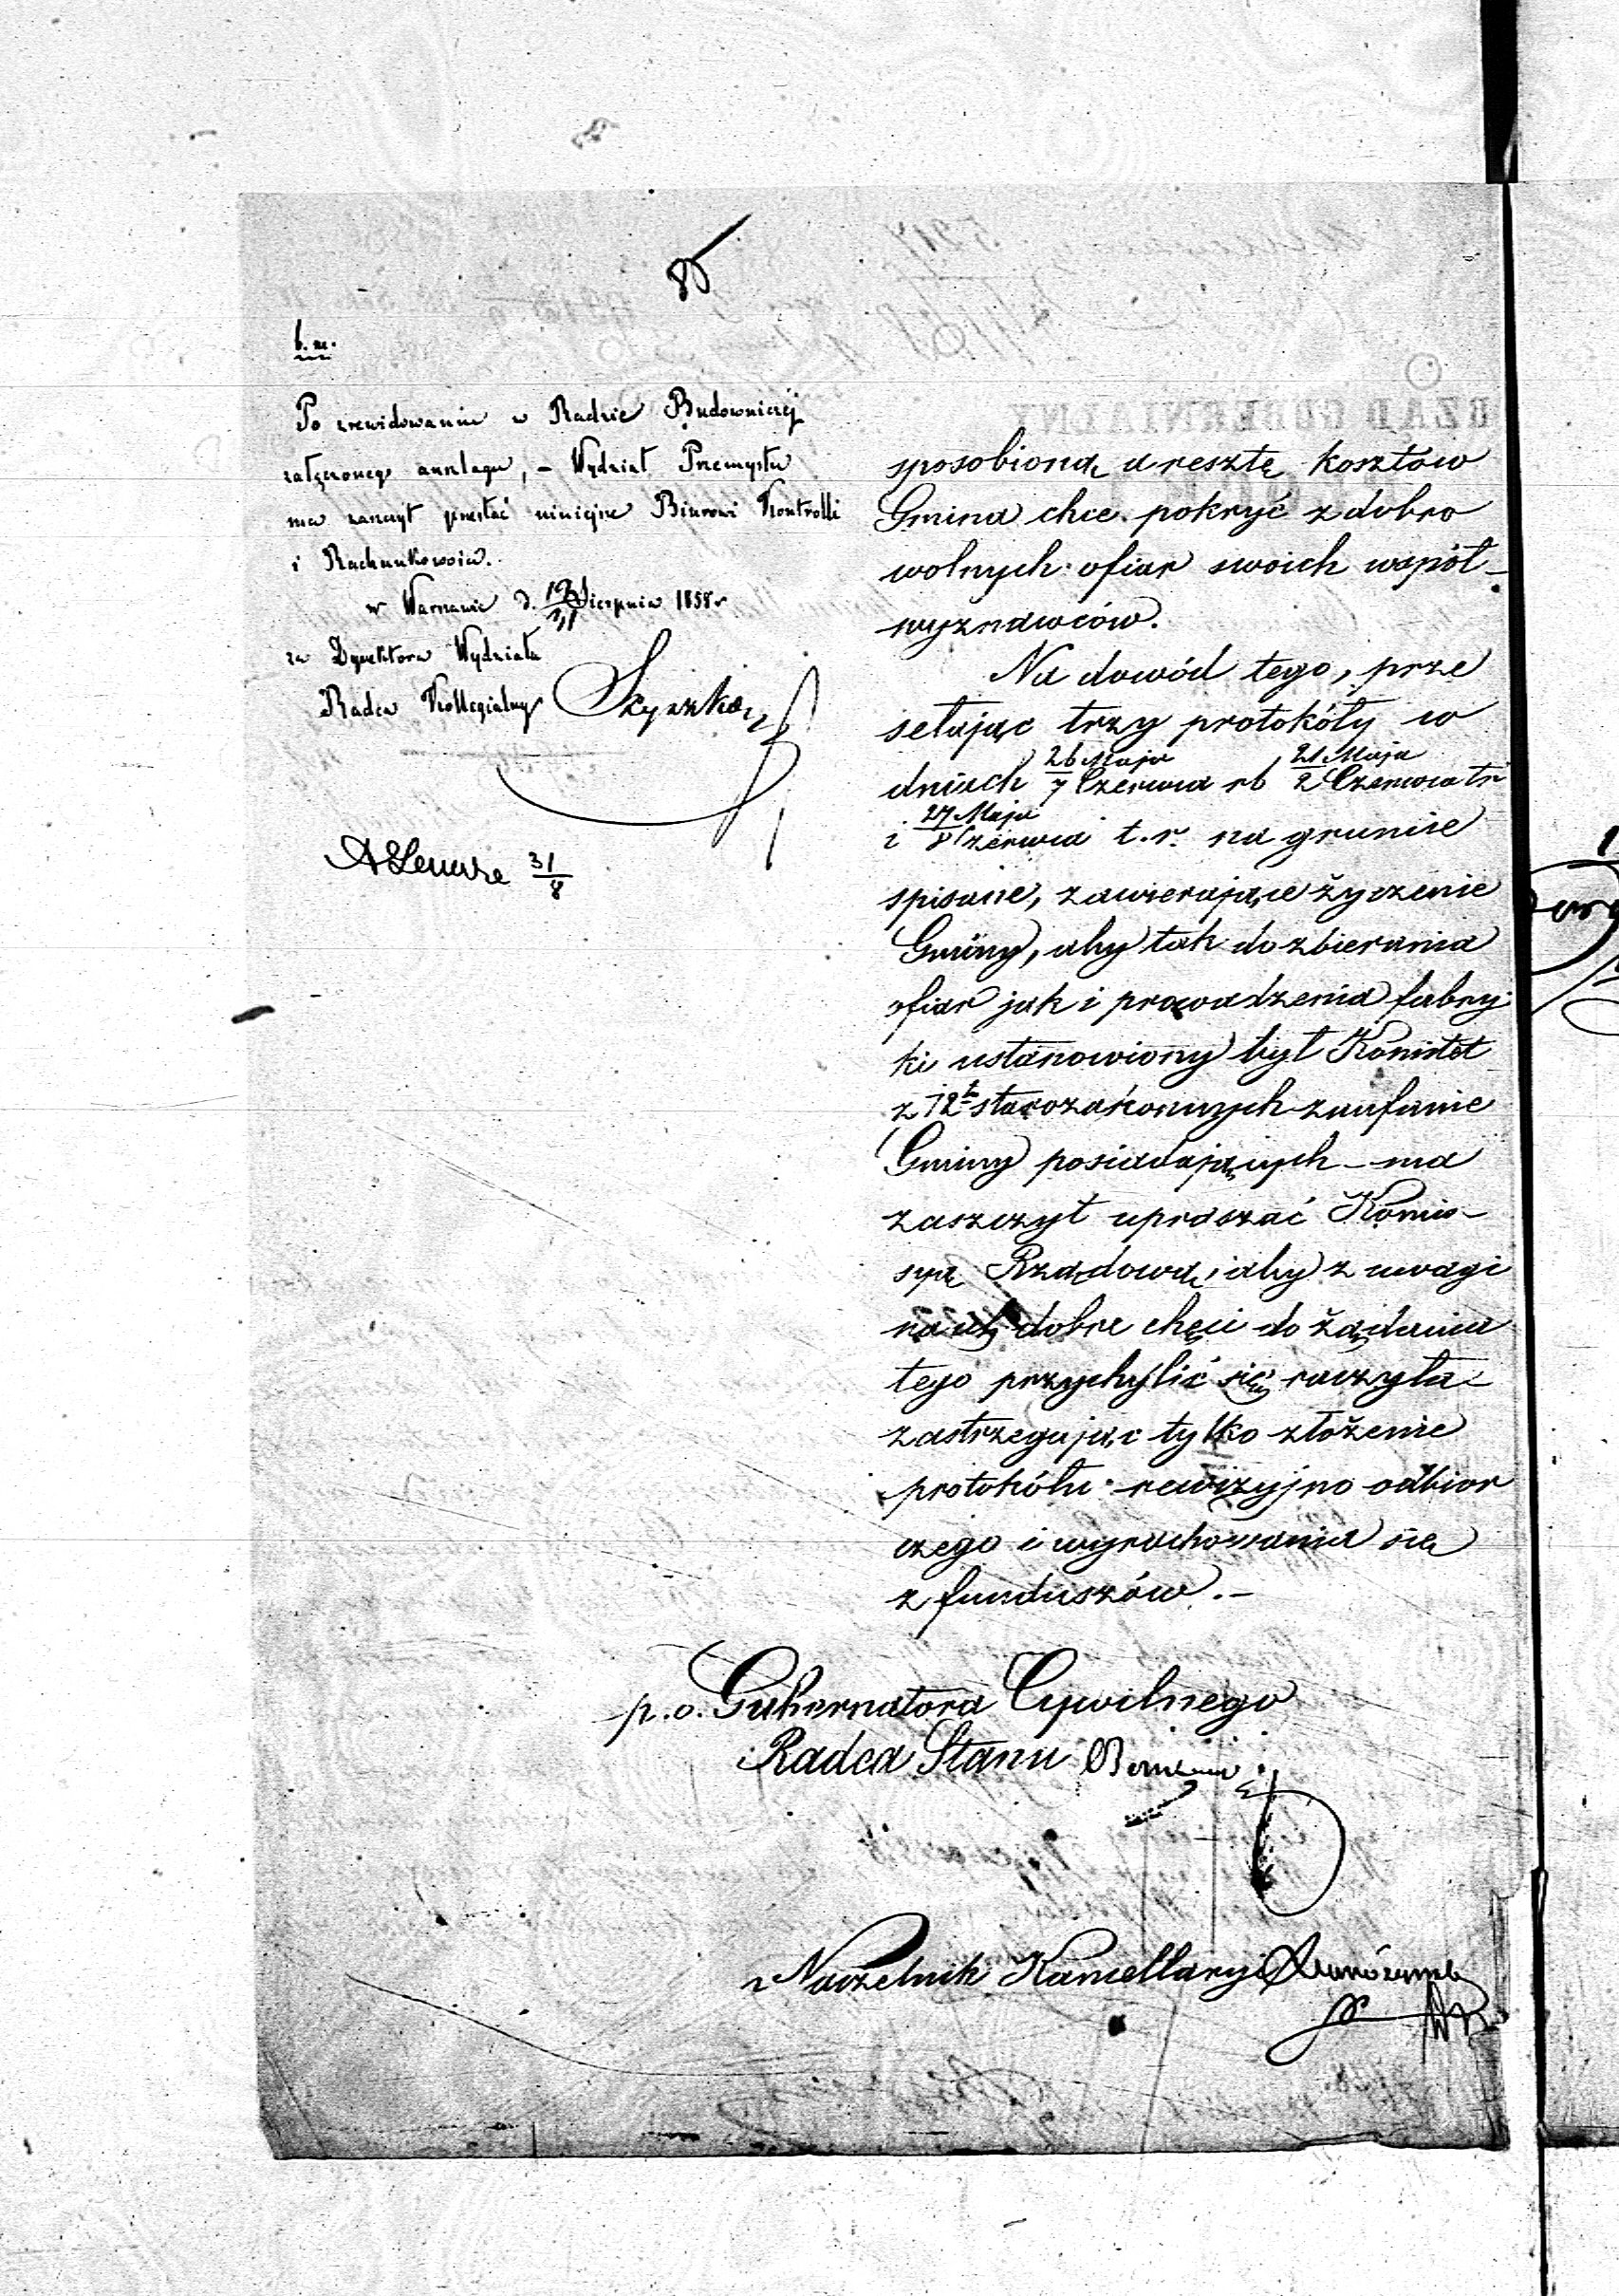 85
b. m.
Po zrewidowaniu w Radzie Budowniczéj
załączonego anszlagu, – Wydział Przemysłu
ma zaszczyt przesłać niniejsze Biurowi Kontrolli
i Rachunkowości.
w Warszawie d. 19/31 Sierpnia 1858 r
za Dyrektora Wydziału
Radca Kollegialny
31/8
sposobioną a resztę kosztów
Gmina chce pokryć z dobro
wolnych ofiar swoich wspót-
wyznawców.
Na dowód tego, prze
setając trzy protokóły w
dniach 26 Maja/7 Czerwca rb 21 Maja/2 Czerwca tr
i 27 Maja/8 Czerwca t.r. na gruncie
spisane, zawierające życzenie
Gminy, aby tak do zbierania
ofiar jak i prowadzenia fabry
ki ustanowiony był Komitet
z 12 starozakonnych zaufanie
Gminy posiadających – ma
zaszczyt upraszać Komis-
syą Rządową, aby z uwagi
na ich dobre chęci do żądania
tego przychylić się raczyła –
zastrzegając tylko złożenie
protokółu rewizyjno odbior
czego i wyrachowania się
z funduszów. –
p. o. Gubernatora Cywilnego
Radca Stanu
Naczelnik Kancellaryi